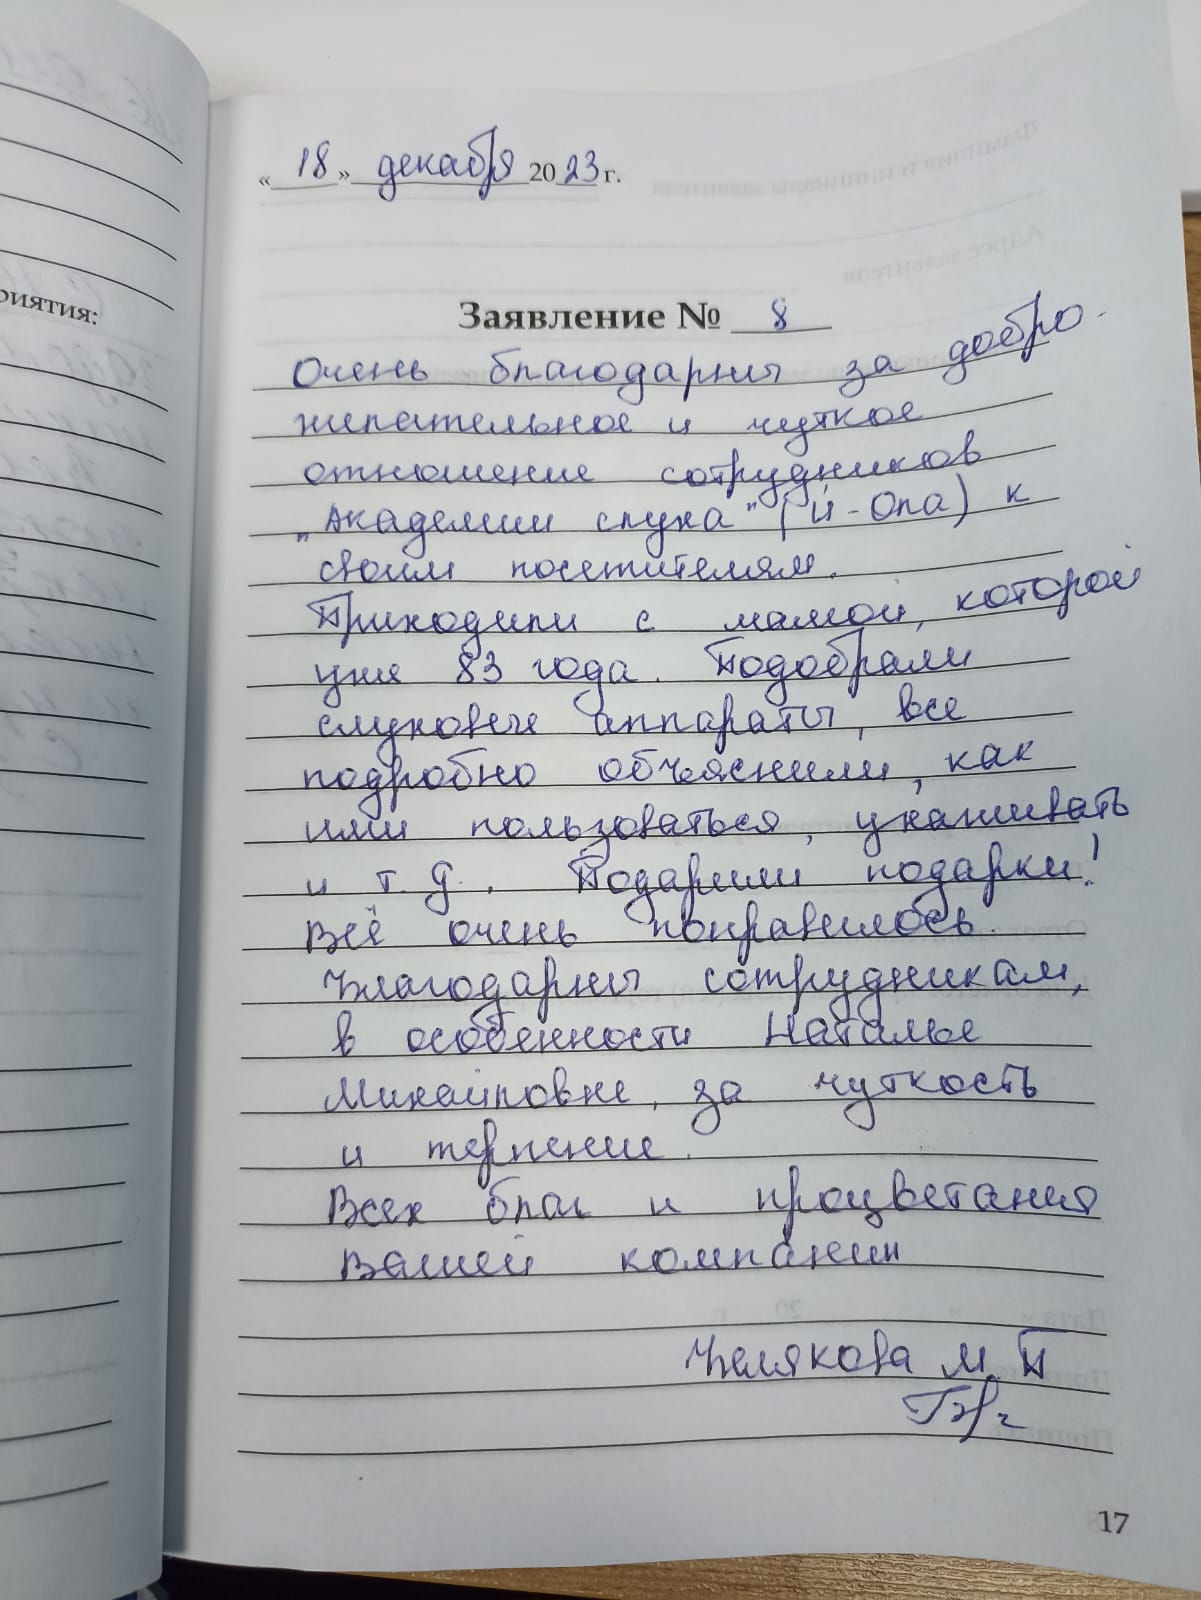 «18» декабря 2023 г.
Заявление № 8
Очень благодарны за добро-
желательное и чуткое
отношение сотрудников
„Академии слуха" (Й-Ола) к
своим посетителям.
Приходили с мамой, которой
уже 83 года. Подобрали
слуховые аппараты, все
подробно объяснили, как
ими пользоваться, ухаживать
и т.д. Подарили подарки!
Всё очень понравилось.
Благодарны сотрудникам,
в особенности Наталье
Михайловне, за чуткость
и терпение.
Всех благ и процветания
Вашей компании
М. П
17
риятия: